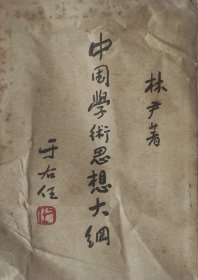 林尹著
中国學術思想大綱
于右任